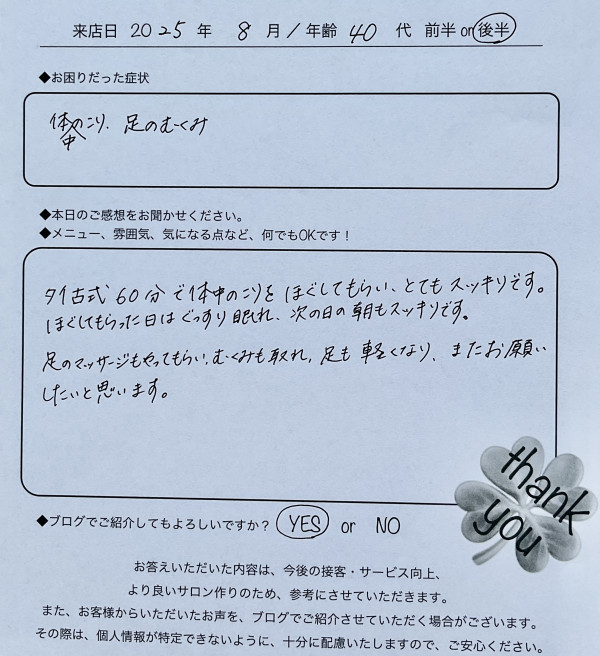 来店日 2025年 8月/年齢 40代 前半 or 後半
◆お困りだった症状
体中のこり、足のむくみ
◆本日のご感想をお聞かせください。
◆メニュー、雰囲気、気になる点など、何でもOKです！
タイ古式60分で体中のこりをほぐしてもらい、とてもスッキリです。
ほぐしてもらった日はぐっすり眠れ、次の日の朝もスッキリです。
足のマッサージもやってもらい、むくみも取れ、足も軽くなり、またお願い
したいと思います。
thank
you
◆ブログでご紹介してもよろしいですか？ YES or NO
お答えいただいた内容は、今後の接客・サービス向上、
より良いサロン作りのため、参考にさせていただきます。
また、お客様からいただいたお声を、ブログでご紹介させていただく場合がございます。
その際は、個人情報が特定できないように、十分に配慮いたしますので、ご安心ください。